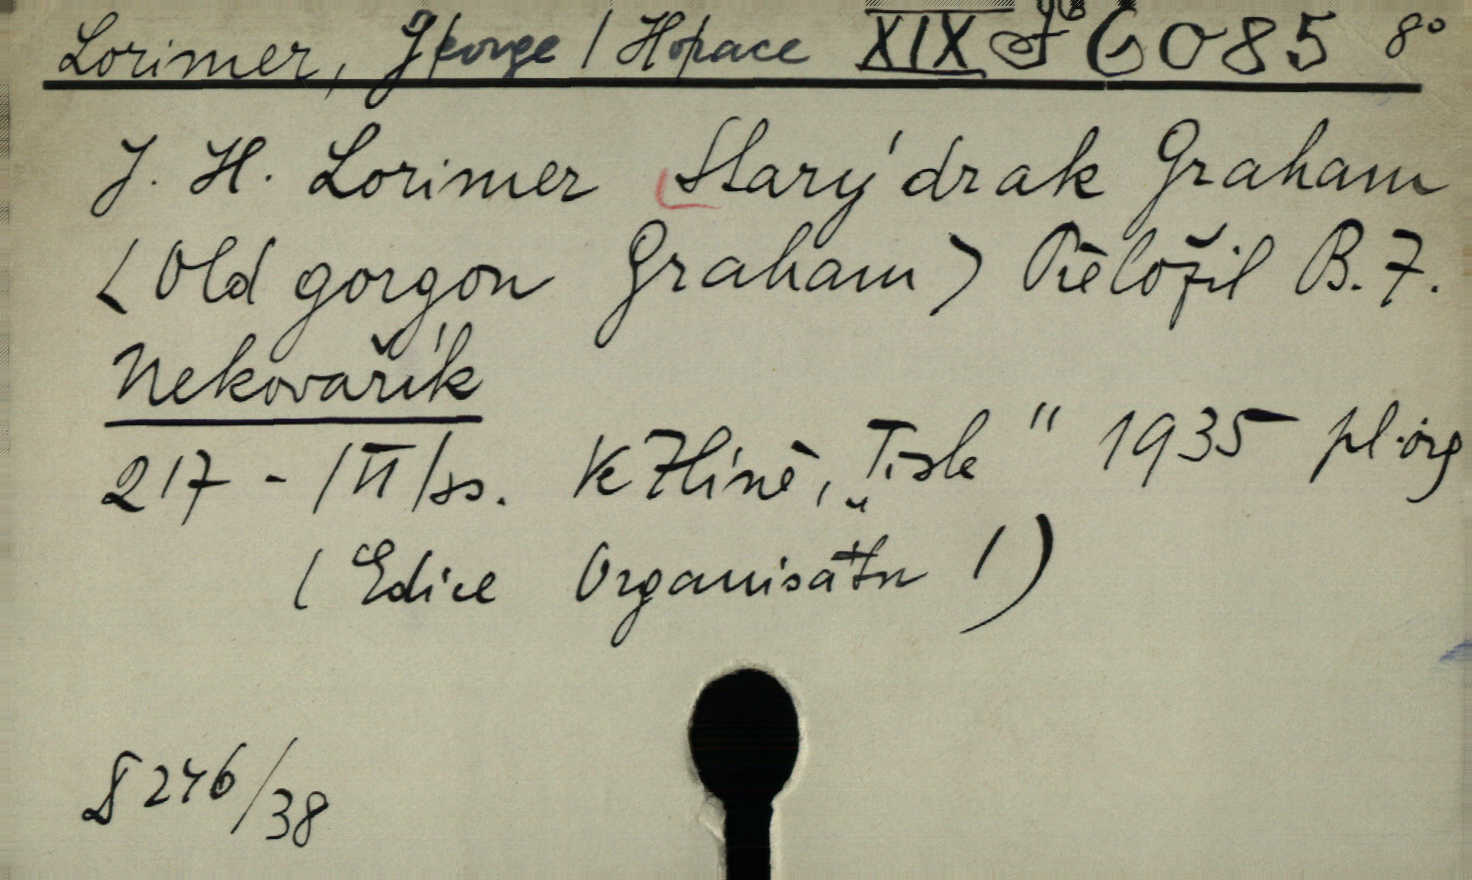 Lorimer, George / Horace XIX J 6085 8°
J. H. Lorimer Starý drak Graham
(Old gorgon Graham) Přeložil B. F.
Nekovařík
217 - /II/ ss. Ve Zlíně, „Tisk" 1935 pl. org
(Edice Organisátor /)
§ 246/38